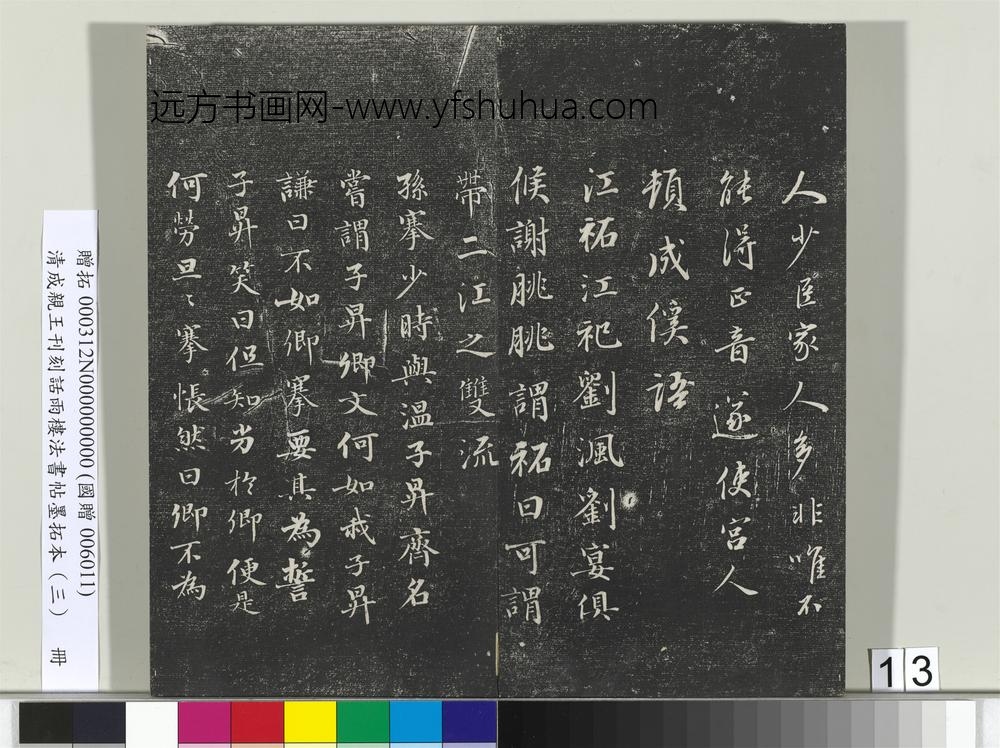 远方书画网-www.yfshuhua.com
人少医家人多非唯不
能得正音遂使宫人
頓成傒語
江祏江祀劉渢劉宴俱
候謝朓朓謂祏曰可謂
帶二江之雙流
孫搴少時與温子昇齊名
嘗謂子昇卿文何如我子昇
謙曰不如卿搴要其為誓
子昇笑曰但知劣於卿便是
何勞旦〻搴悵然曰卿不為
贈拓 000312N000000000 (國贈 006011)
清成親王刊刻詒晉樓法書帖墨拓本（三） 冊
13